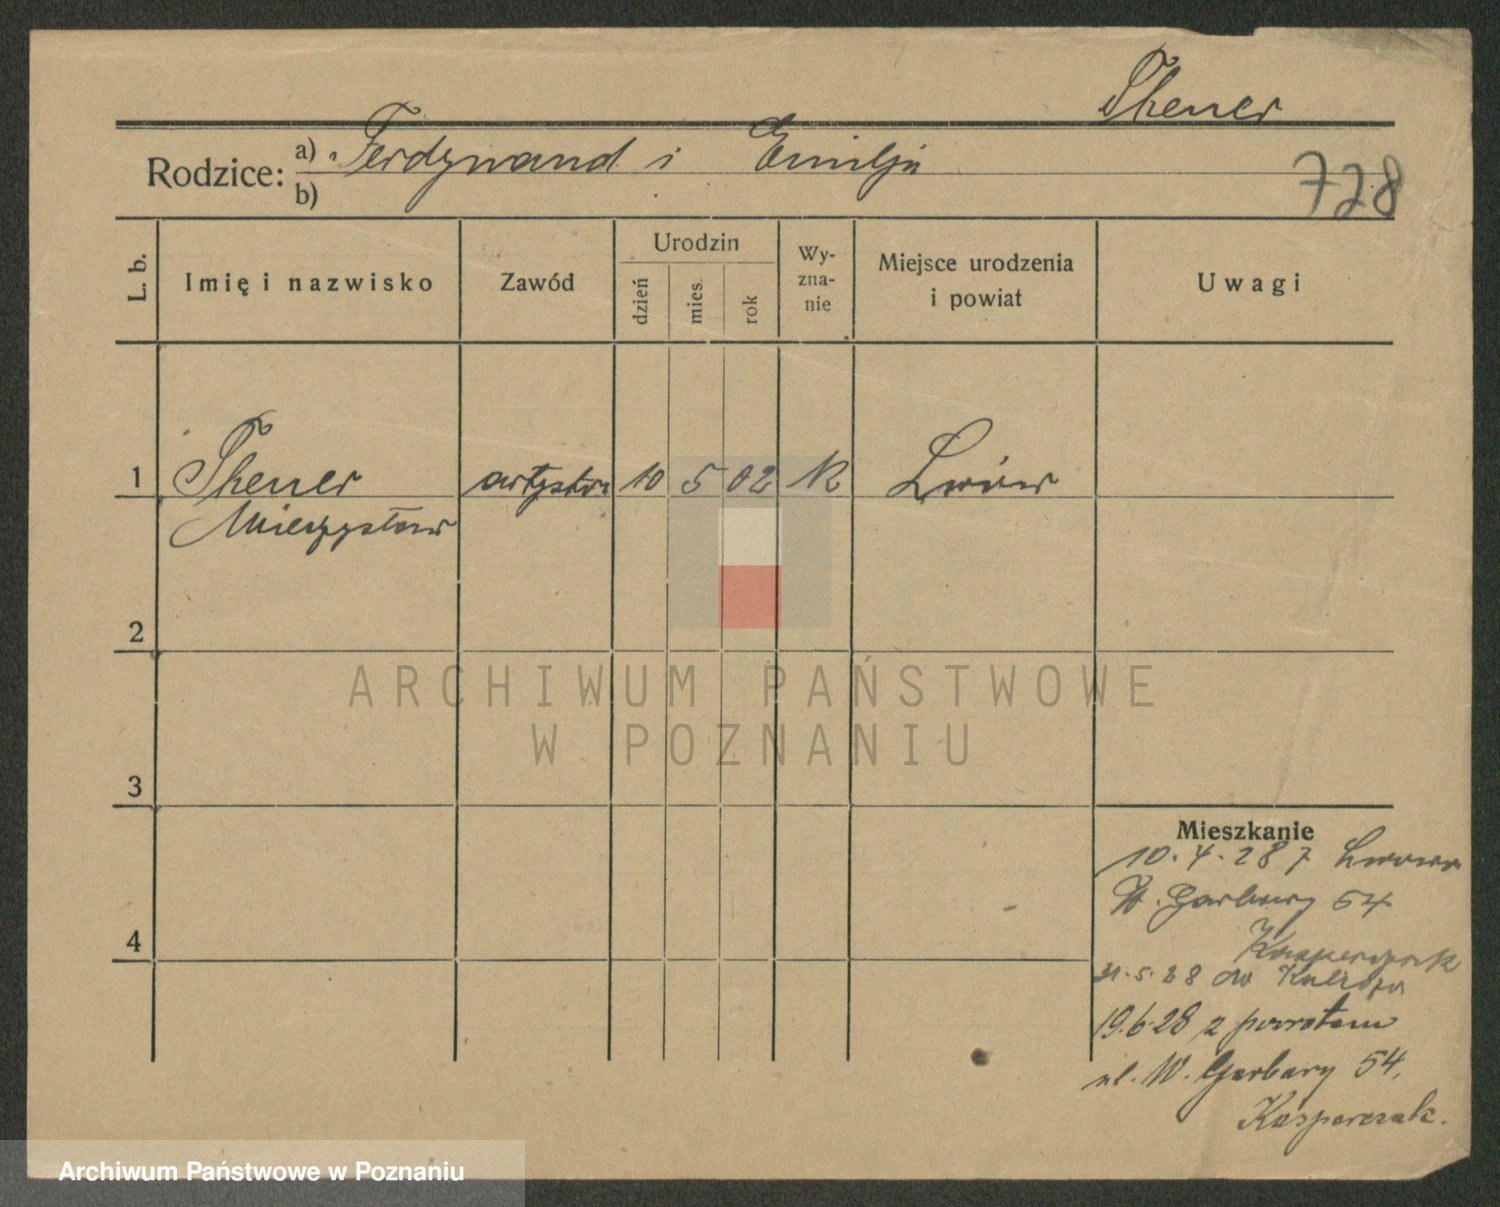 Thener
Rodzice: a) Ferdynand i Emilja
b)
728
L. b.
Imię i nazwisko
Zawód
Urodzin
dzień
mies.
rok
Wy-
zna-
nie
Miejsce urodzenia
i powiat
Uwagi
1
Thener
Mieczysław
artysta
10
5
02
k
Lwów
2
3
4
Mieszkanie
10.4.28 z Lwowa
W. Garbary 54
Kasperczak
31.5.28 do
19.6.28 z powrotem
ul. W. Garbary 54.
Kasperczak.
ARCHIWUM PAŃSTWOWE
W POZNANIU
Archiwum Państwowe w Poznaniu